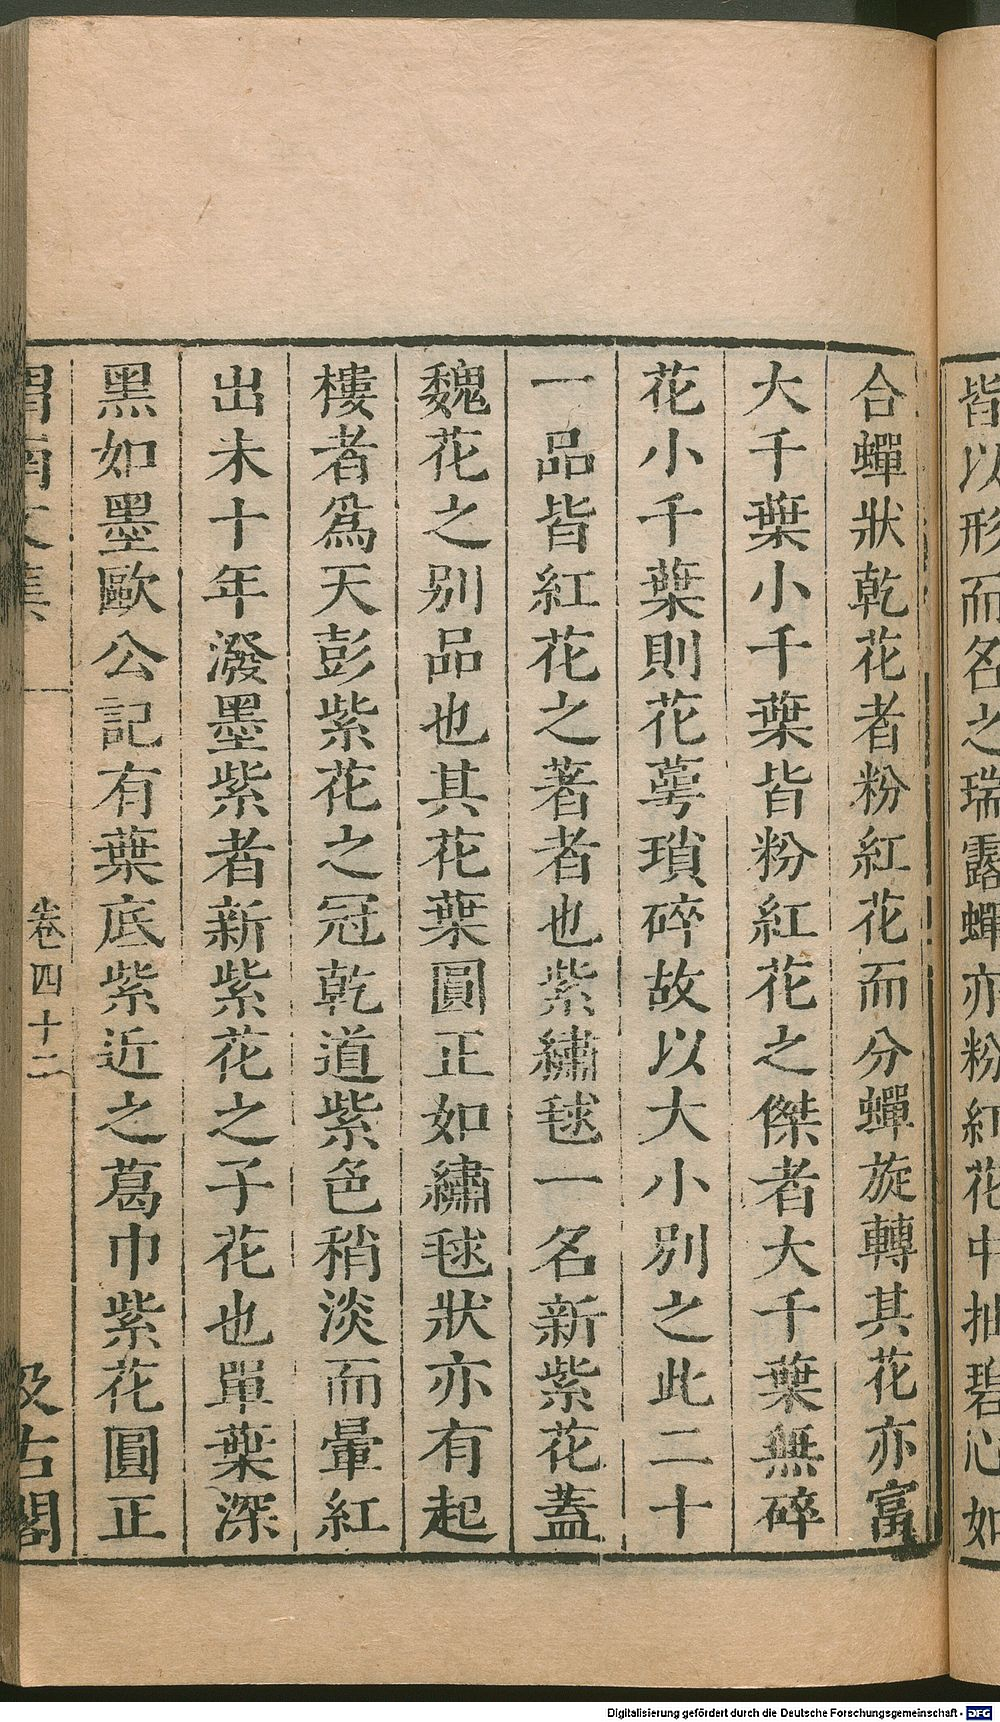 皆以形而名之瑞露蟬亦粉紅花中抽碧心如
合蟬狀乾花者粉紅花而分蟬旋轉其花亦富
大千葉小千葉皆粉紅花之傑者大千葉無碎
花小千葉則花蕚瑣碎故以大小別之此二十
一品皆紅花之著者也紫繡毬一名新紫花蓋
魏花之别品也其花葉圓正如繡毬狀亦有起
樓者爲天彭紫花之冠乾道紫色稍淡而暈紅
出未十年潑墨紫者新紫花之子花也單葉深
黑如墨歐公記有葉底紫近之葛巾紫花圓正
渭南文集
卷四十二
汲古閣
Digitalisierung gefördert durch die Deutsche Forschungsgemeinschaft - DFG